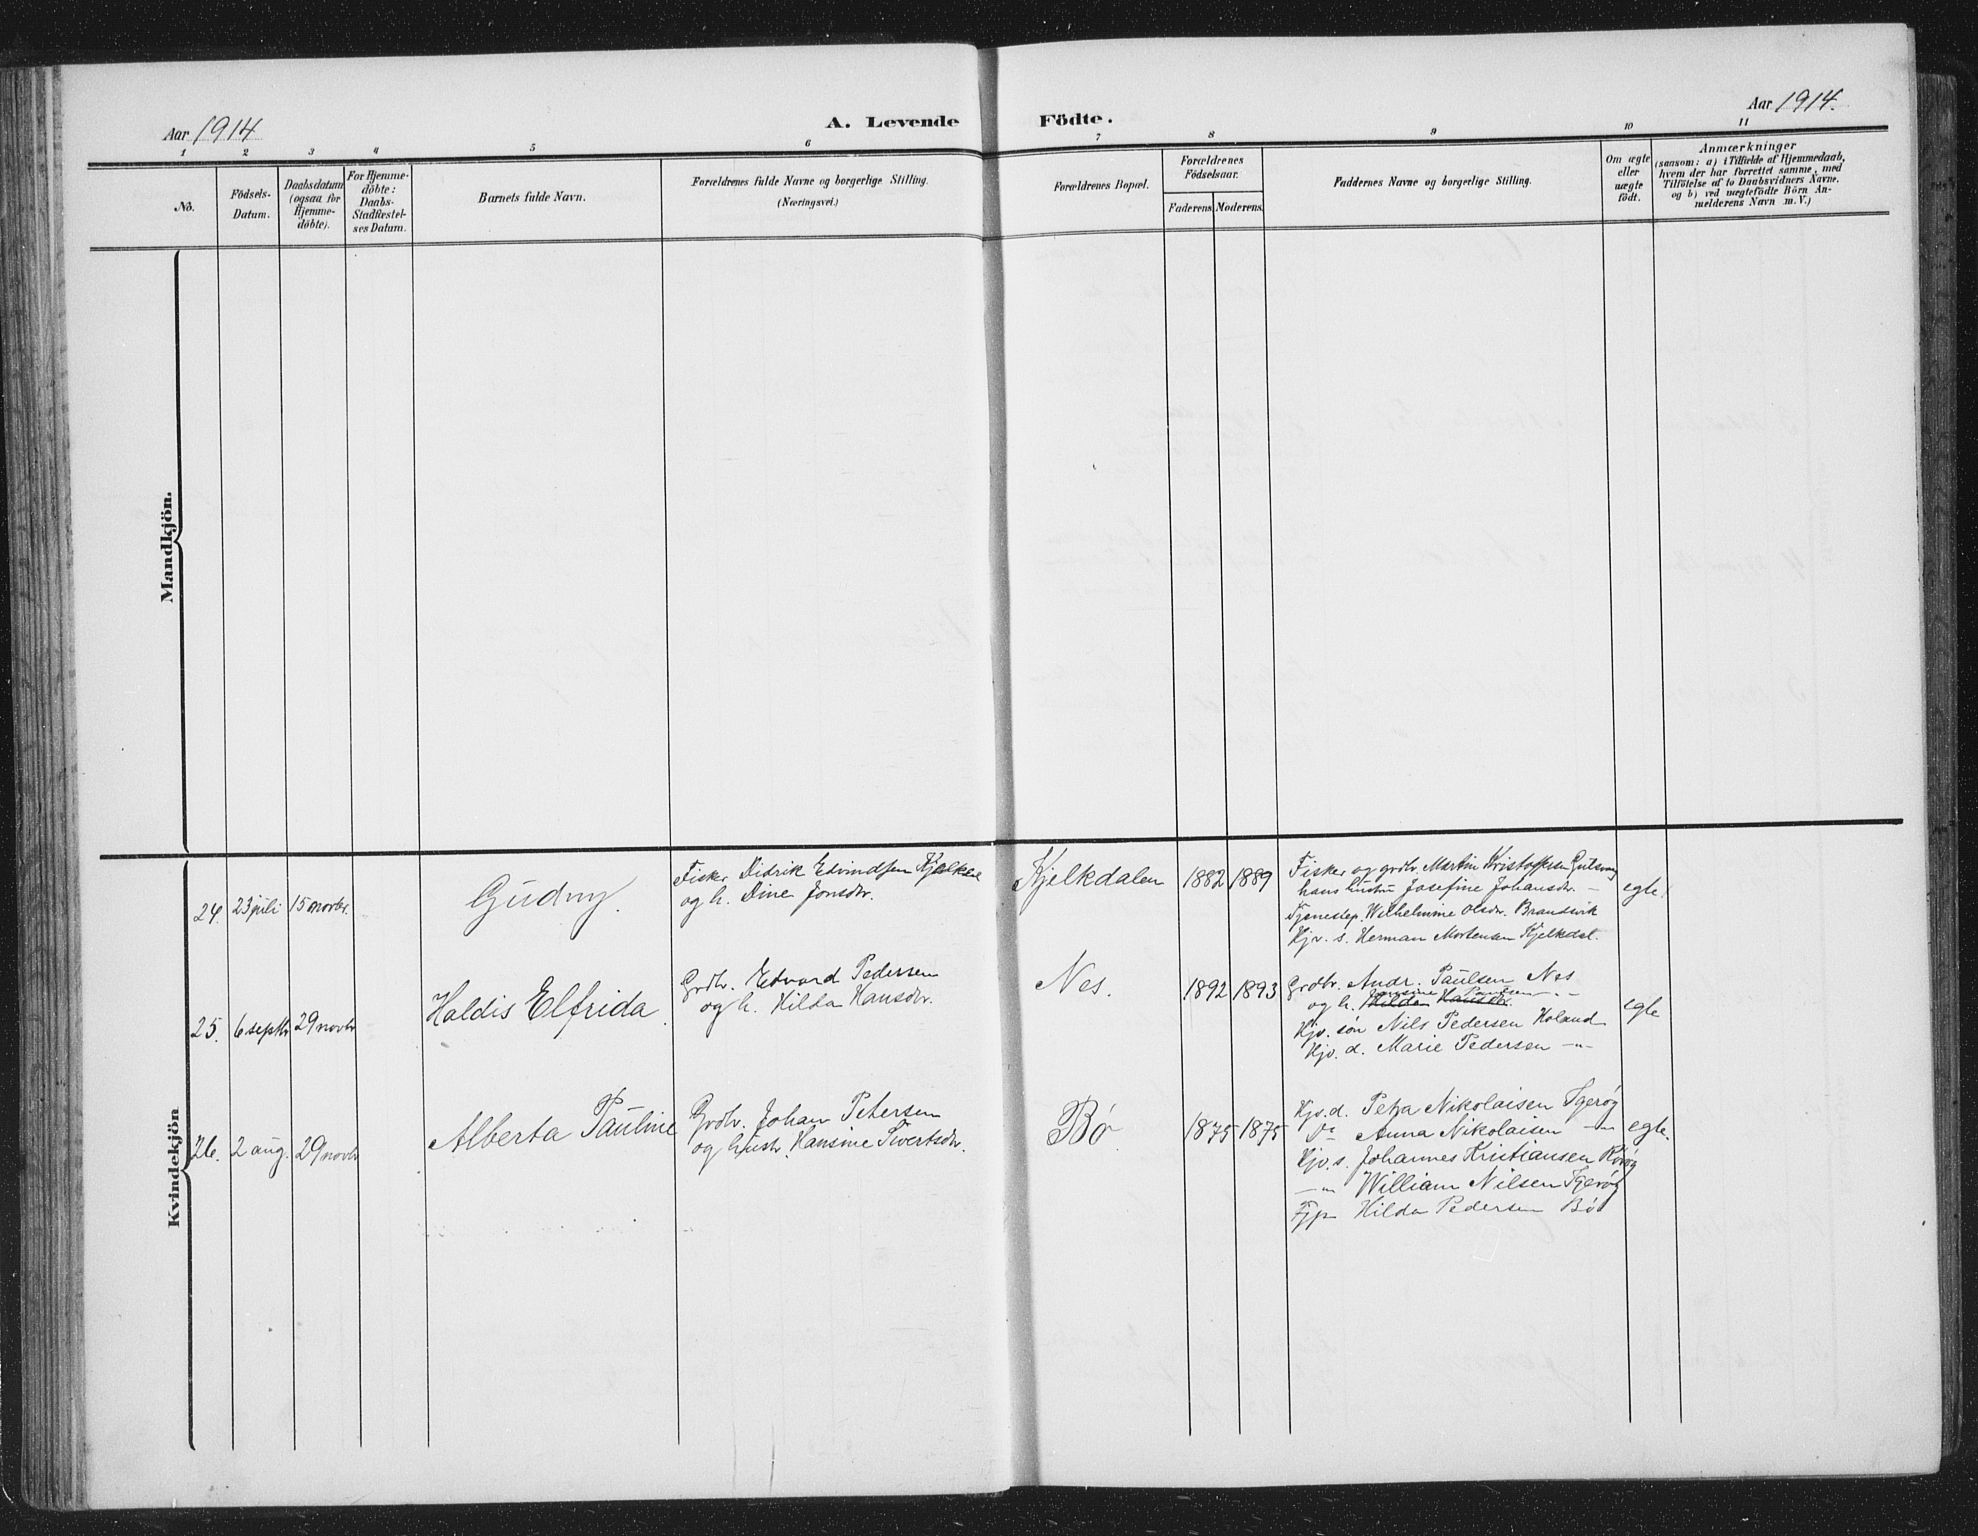 Aar 1914
A. Levende
Födte.
Aar 1914.
1 2 3 4 5 6 7 8 9 10 11
No.
Födsels-
Datum.
Daabsdatum
(ogsaa for
Hjemme-
döbte).
For Hjemme-
döbte:
Daabs-
Stadfæstel-
ses Datum.
Barnets fulde Navn.
Forældrenes fulde Navne og borgerlige Stilling.
(Næringsvei.)
Forældrenes Bopæl.
Forældrenes
Födselsaar.
Faderens. Moderens.
Faddernes Navne og borgerlige Stilling.
Om ægte
eller
uægte
födt.
Anmærkninger
(saasom: a) i Tilfælde af Hjemmedaab,
hvem der har forrettet samme, med
Tilföielse af to Daabsvidners Navne.
og b) ved uægtefödte Börn An-
melderens Navn m. V.)
Mandkjön.
Kvindekjön
24. 23 juli 15 novbr. Gudny.
Fisker Didrik Edvindsen Kjelkdl
og h. Dine Jonsdtr.
Kjelkdalen 1882 1889
Fisker og grdbr. Martin Kristoffersen
hans hustru Josefine Johansdtr. -
Tjenestep. Wilhelmine Olsdtr. Brandsvik
Kjv. s. Herman Mortensen Kjelkdal.
egte.
25. 6 septbr 29 novbr Haldis Elfrida.
Grdbr. Edvard Pedersen
og h. Hilda Hansdtr.
Nes. 1892 1893
Grdbr. Andr. Paulsen Nes
og h. Hilda Hansdtr. Paulsen -"-
Kjv. søn Nils Pedersen Holand
Kjv. d. Marie Pedersen -"-
egte
26. 2 aug. 29 novbr Alberta Pauline
Grdbr. Johan Petersen
og hustr. Hansine Sivertsdtr.
Bø 1875 1875
Kjv. d. Petra Nikolaisen Tjerøy
Do Anna Nikolaisen -"-
Kjv. s. Johannes Kristiansen
-"- William Nilsen Tjerøy
Tjp Hilda Pedersen Bø
egte.